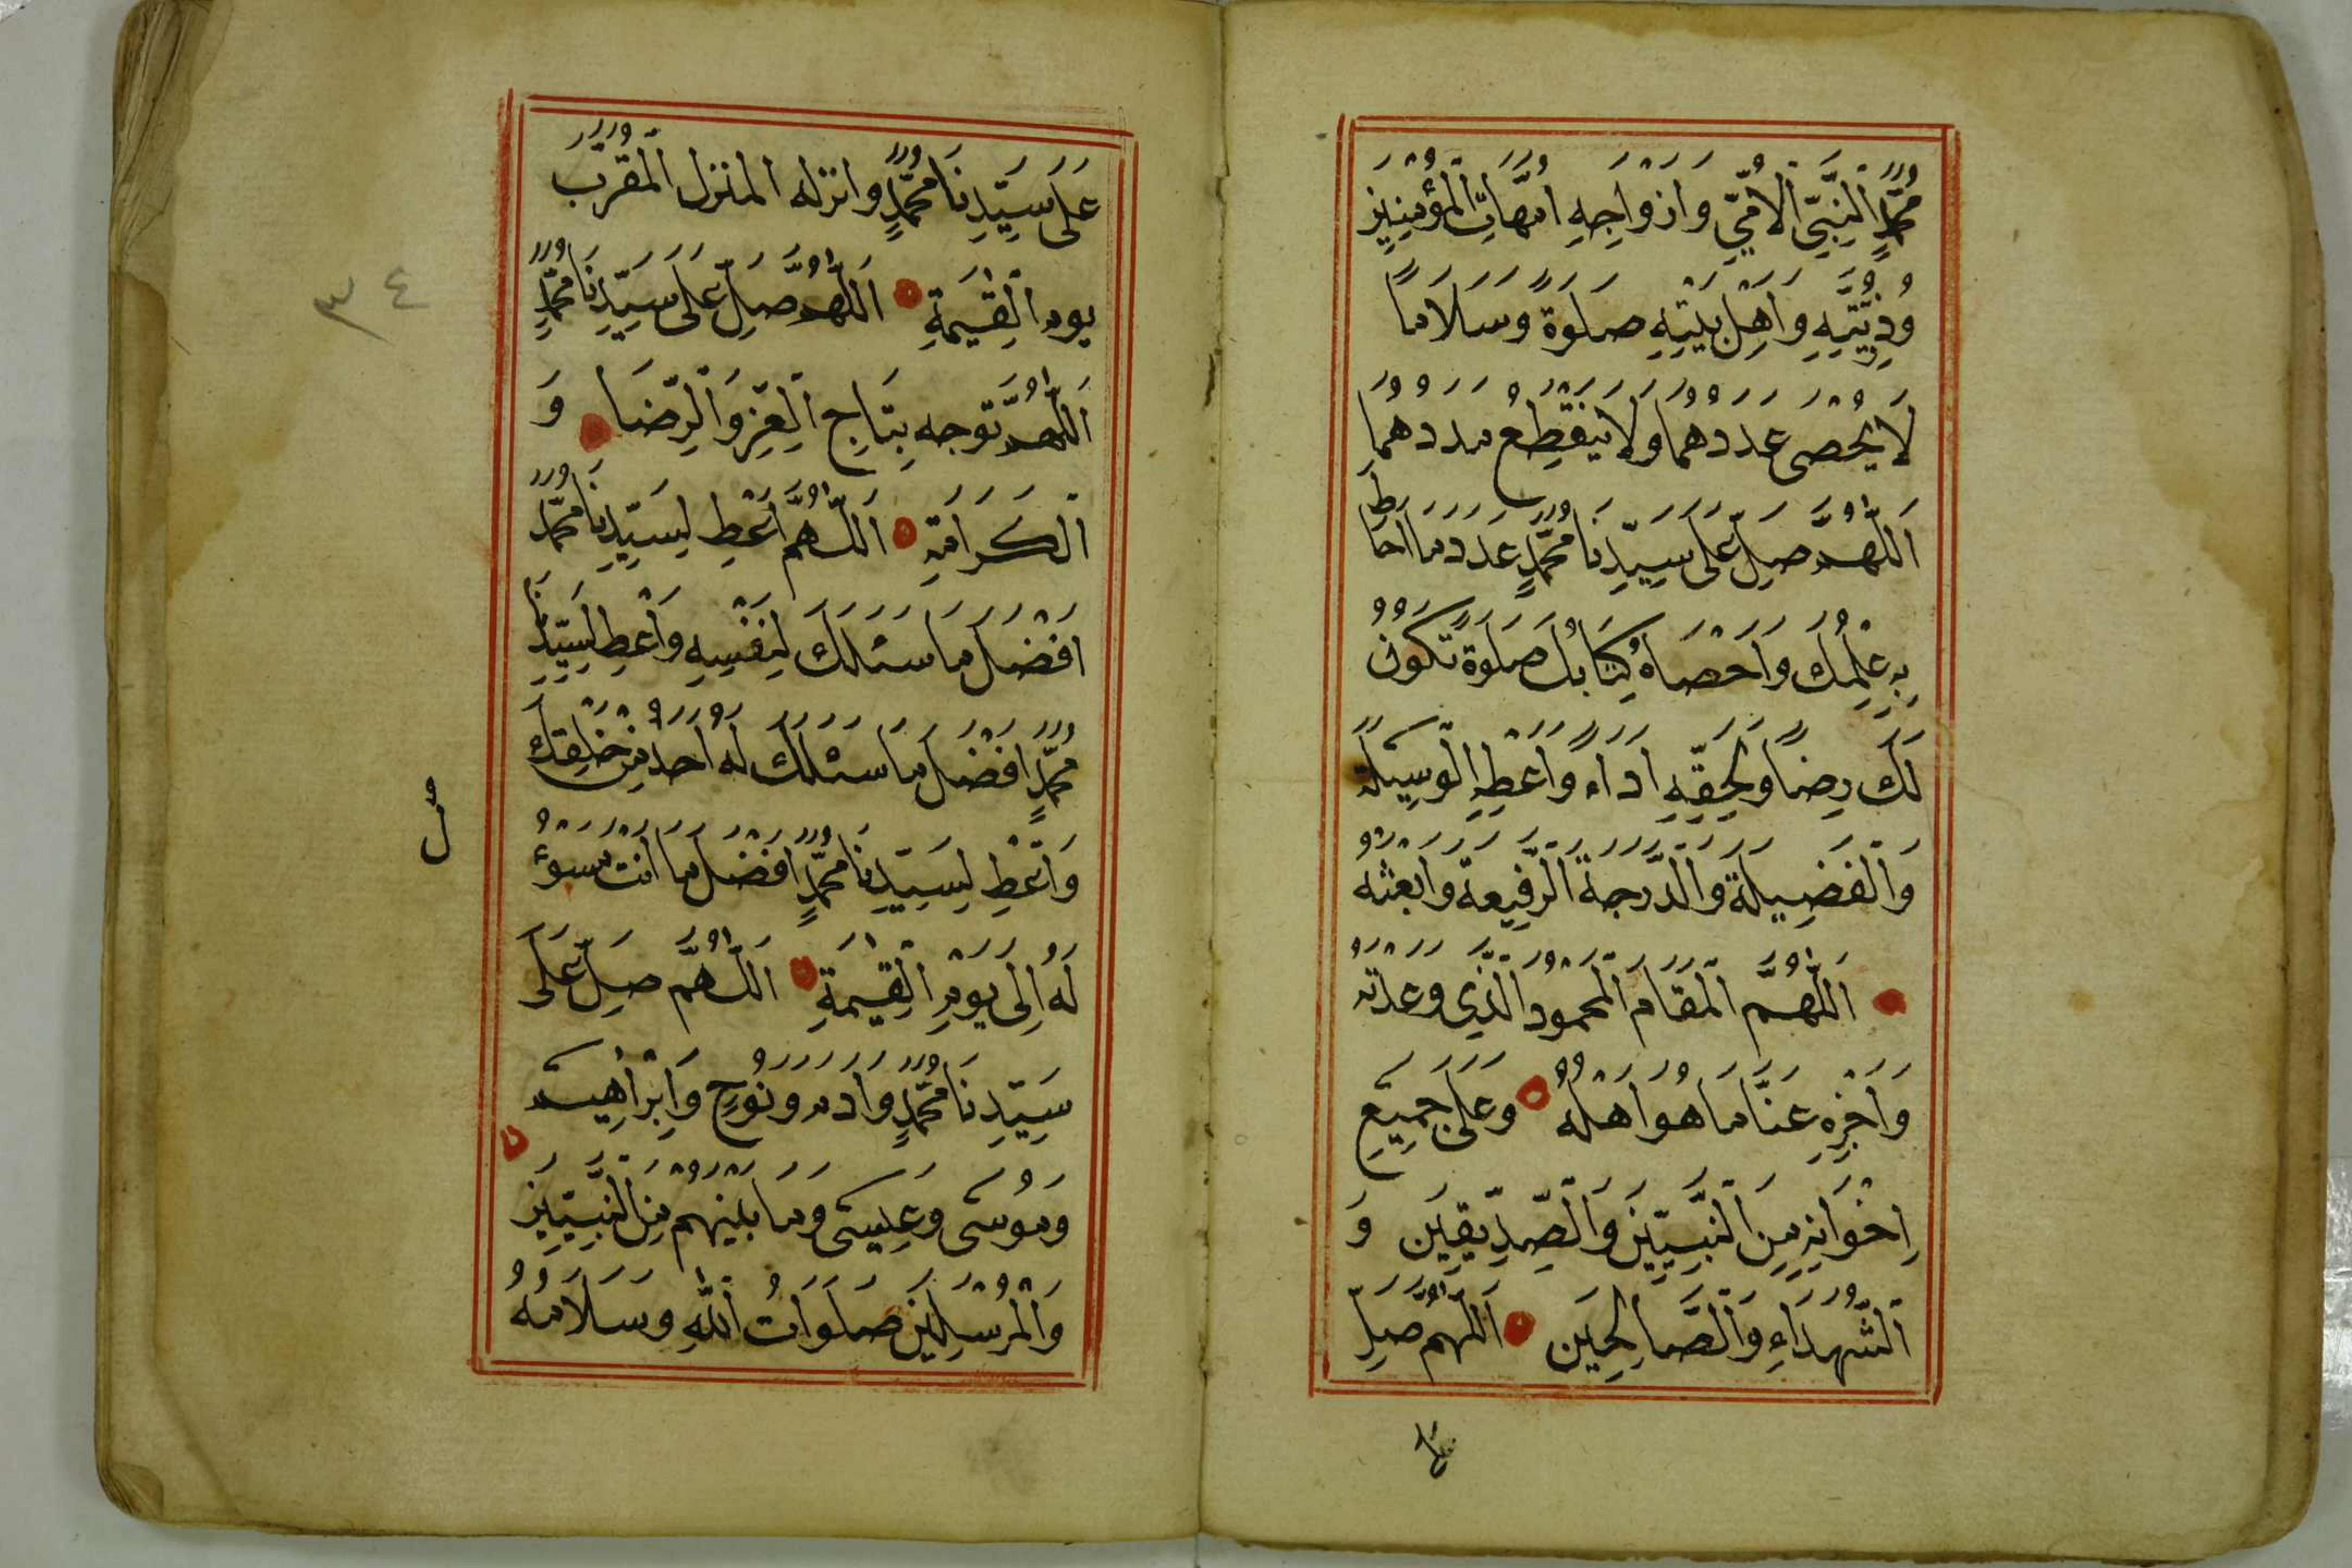 مُحَمَّدٍ النَّبِيِّ الْاُمِّيِّ وَاَزْوَاجِهِ اُمَّهَاتِ الْمُؤْمِنِينَ
وَذُرِّيَّتِهِ وَاَهْلِ بَيْتِهِ صَلَوةً وَسَلَامًا
لَا يُحْصَى عَدَدُهُمَا وَلَا يَنْقَطِعُ مَدَدُهُمَا
اَللّٰهُمَّ صَلِّ عَلَى سَيِّدِنَا مُحَمَّدٍ عَدَدَ مَا اَحَاطَ
بِهِ عِلْمُكَ وَاَحْصَاهُ كِتَابُكَ صَلَوةً تَكُونُ
لَكَ رِضًا وَلِحَقِّهِ اَدَاءً وَاَعْطِهِ الْوَسِيلَةَ
وَالْفَضِيلَةَ وَالدَّرَجَةَ الرَّفِيعَةَ وَابْعَثْهُ
اَللّٰهُمَّ الْمَقَامَ الْمَحْمُودَ الَّذِي وَعَدْتَهُ
وَاجْزِهِ عَنَّا مَا هُوَ اَهْلُهُ وَعَلَى جَمِيعِ
اِخْوَانِهِ مِنَ النَّبِيِّينَ وَالصِّدِّيقِينَ وَ
الشُّهَدَاءِ وَالصَّالِحِينَ اَللّٰهُمَّ صَلِّ
عَلَى
عَلَى سَيِّدِنَا مُحَمَّدٍ وَانْزِلْهُ الْمَنْزِلَ الْمُقَرَّبَ
يَوْمَ الْقِيٰمَةِ اَللّٰهُمَّ صَلِّ عَلَى سَيِّدِنَا مُحَمَّدٍ
٣٤
اَللّٰهُمَّ تَوِّجْهُ بِتَاجِ الْعِزِّ وَالرِّضَا وَ
الْكَرَامَةِ اَللّٰهُمَّ اَعْطِ لِسَيِّدِنَا مُحَمَّدٍ
اَفْضَلَ مَا سَئَلَكَ لِنَفْسِهِ وَاَعْطِ لِسَيِّدِنَا
مُحَمَّدٍ اَفْضَلَ مَا سَئَلَكَ لَهُ اَحَدٌ مِنْ خَلْقِكَ
وَاَعْطِ لِسَيِّدِنَا مُحَمَّدٍ اَفْضَلَ مَا اَنْتَ مَسْؤُ
ل
لَهُ اِلَى يَوْمِ الْقِيٰمَةِ اَللّٰهُمَّ صَلِّ عَلَى
سَيِّدِنَا مُحَمَّدٍ وَاٰدَمَ وَنُوحٍ وَاِبْرَاهِيمَ
وَمُوسَى وَعِيسَى وَمَا بَيْنَهُمْ مِنَ النَّبِيِّينَ
وَالْمُرْسَلِينَ صَلَوَاتُ اللّٰهِ وَسَلَامُهُ